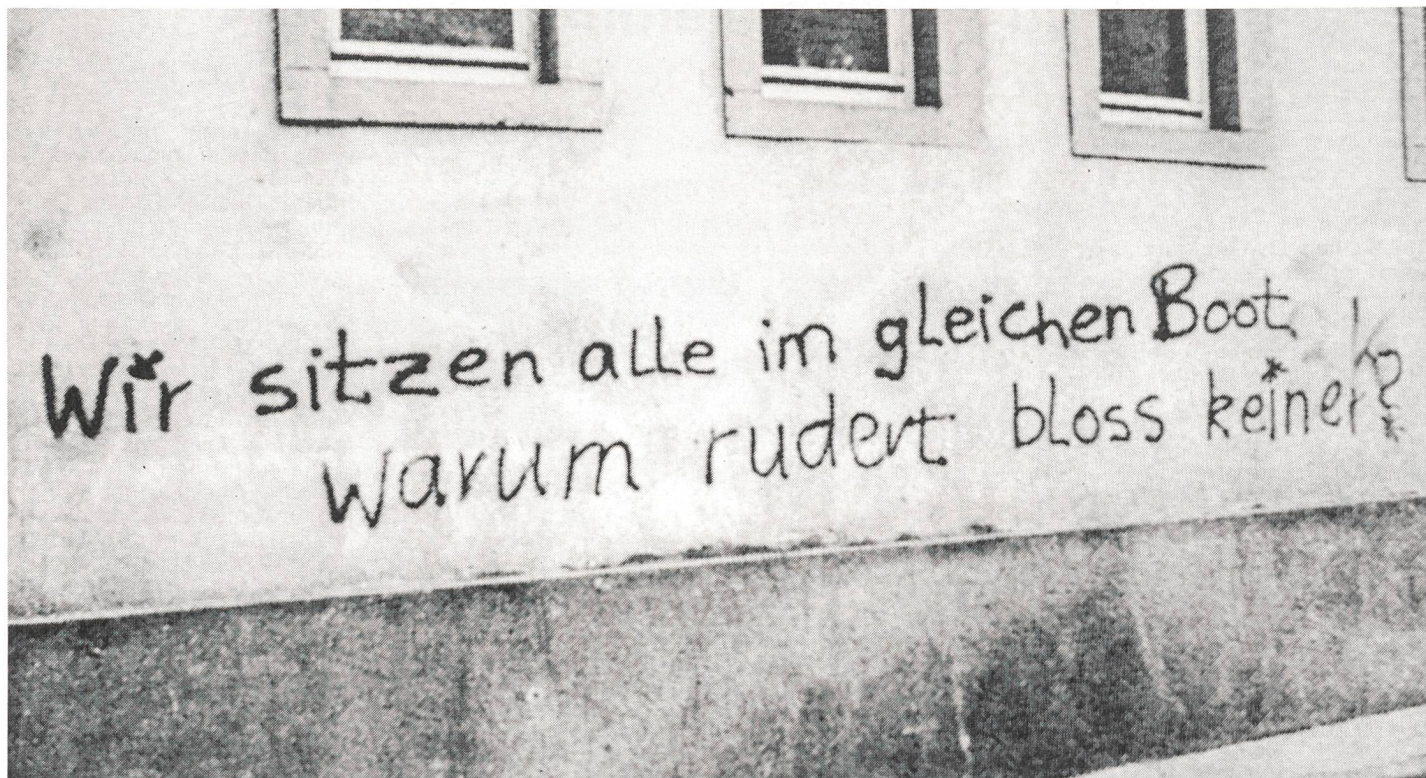 Wir sitzen alle im gleichen Boot
warum rudert bloss keiner?